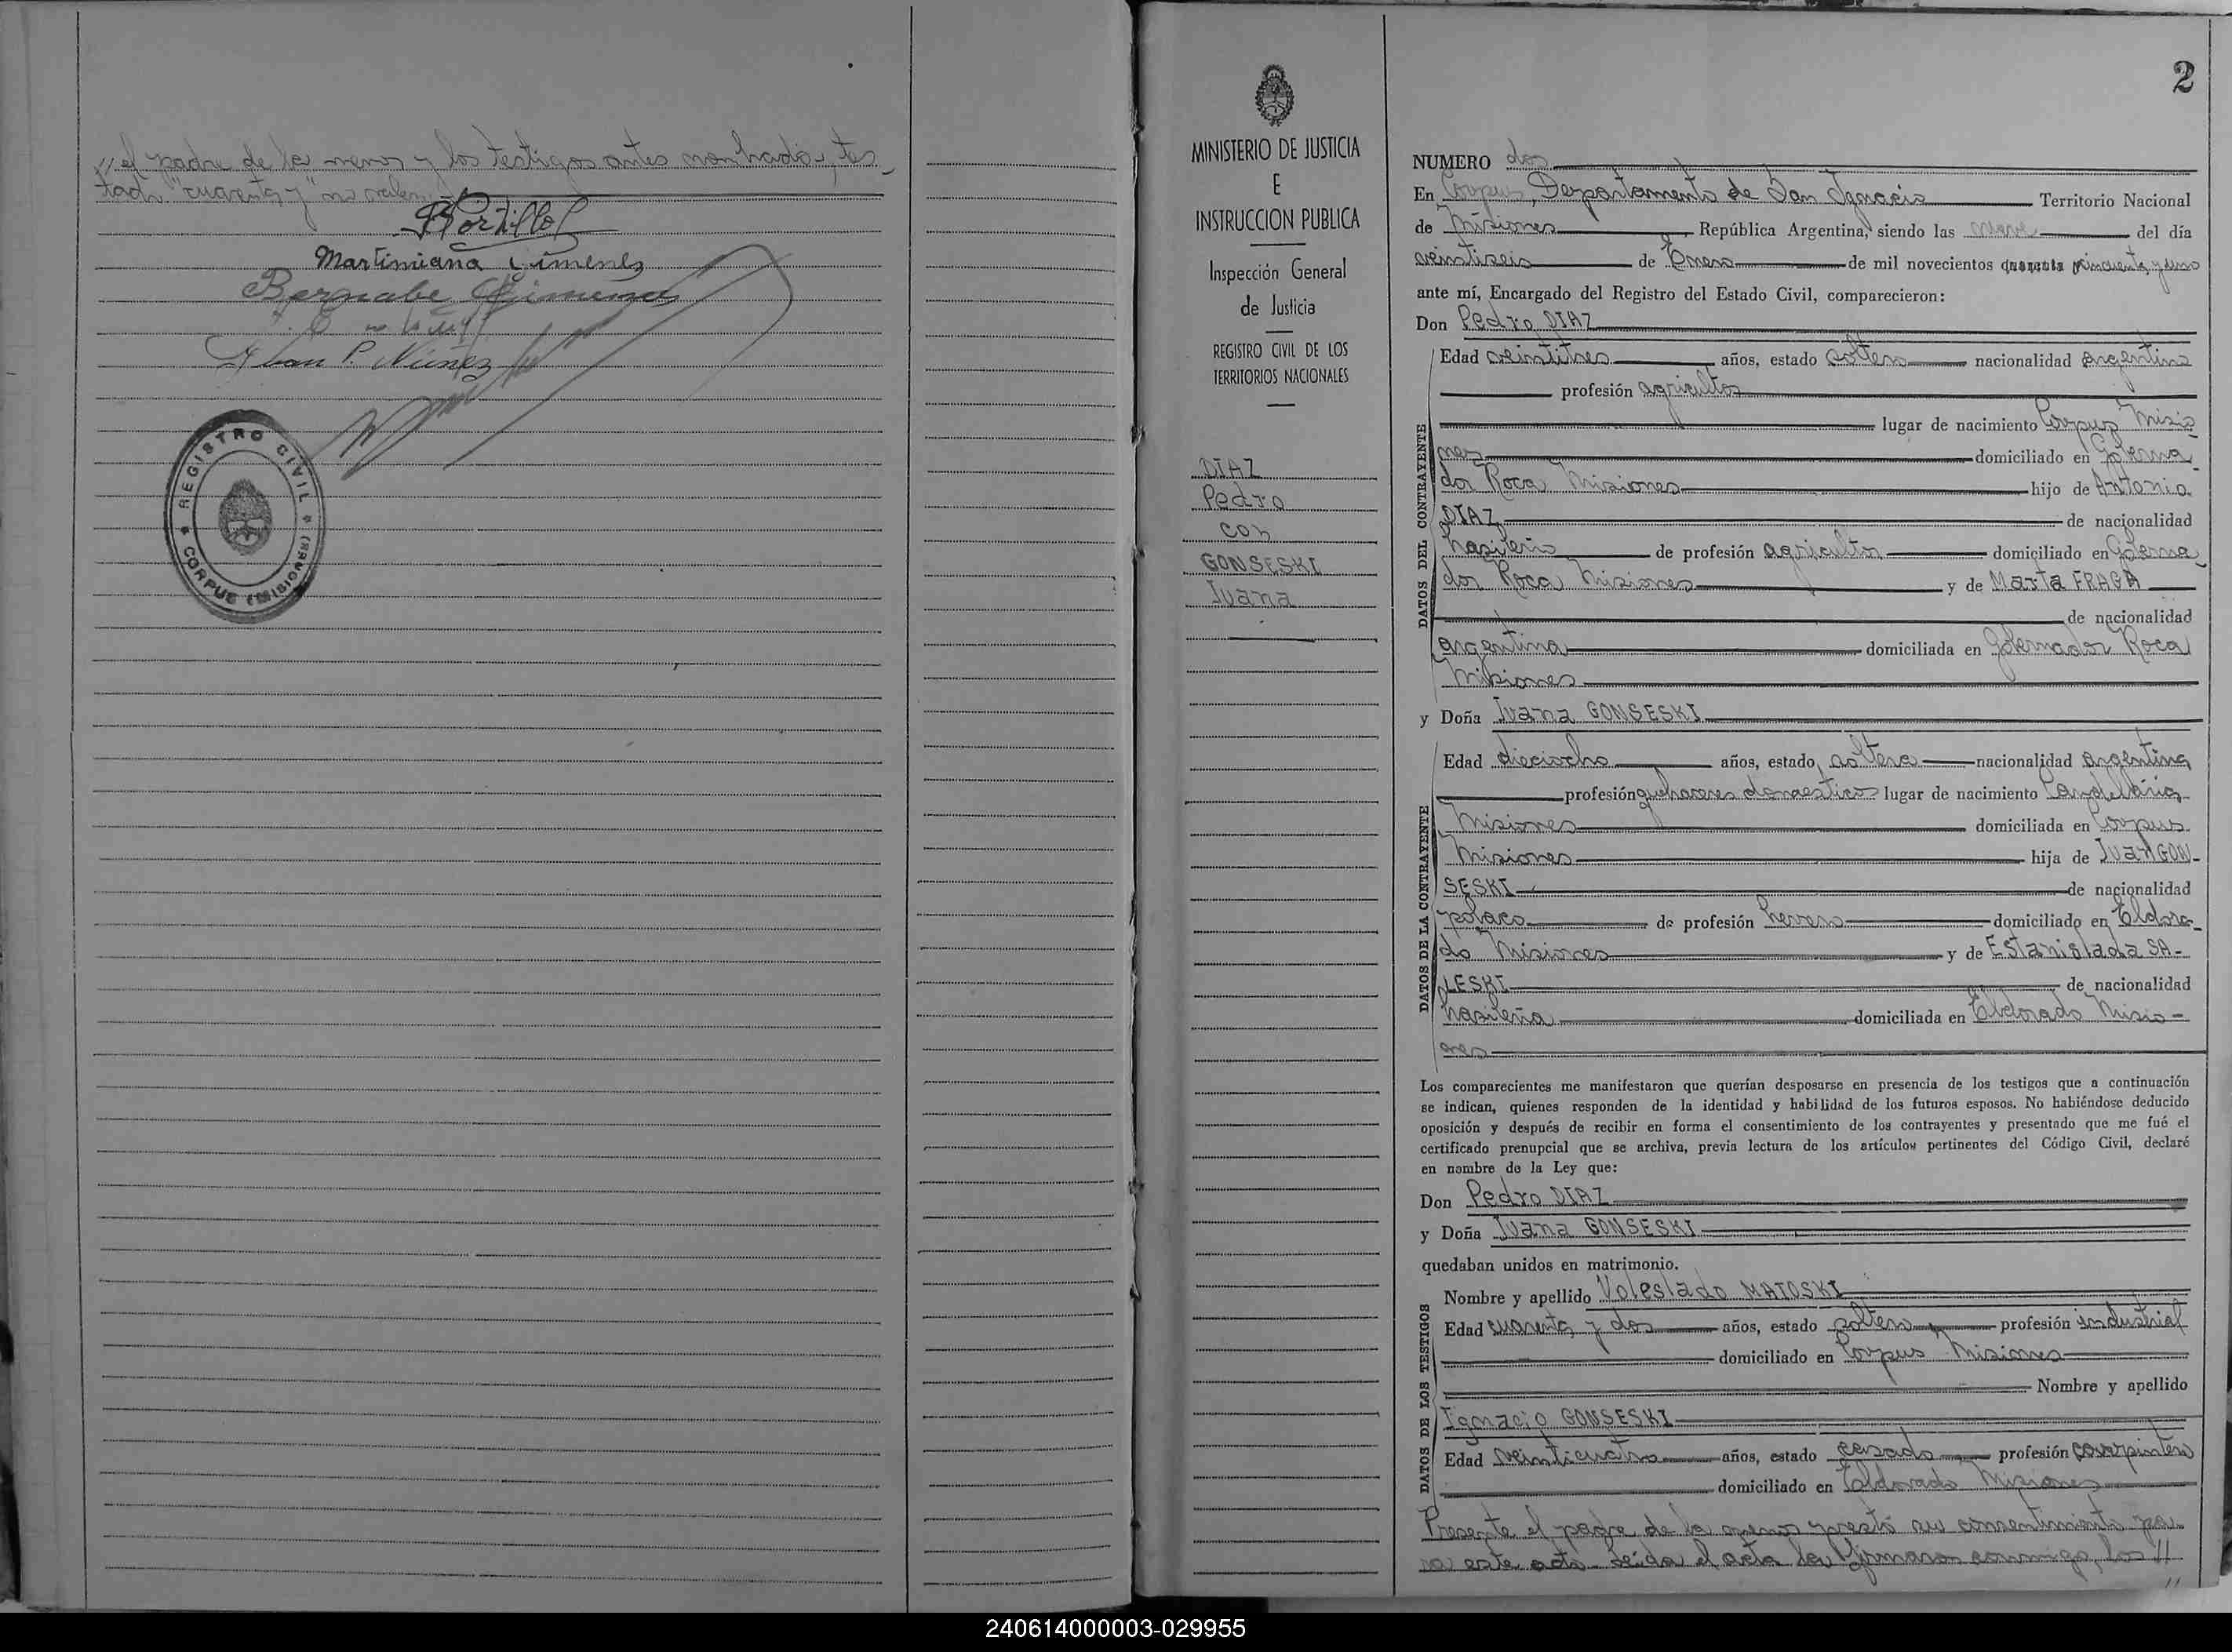 // el padre de la menor y los testigos antes nombrados, tes-
tado "cuarenta y" no valen
Portillo
Martiniana Gimenez
Bernabe Gimenez
Juan P. Núñez
REGISTRO CIVIL
CORPUS (MISIONES)
2
MINISTERIO DE JUSTICIA
E
INSTRUCCION PUBLICA
Inspección General
de Justicia
REGISTRO CIVIL DE LOS
TERRITORIOS NACIONALES
DIAZ
Pedro
con
GONSESKI
Juana
NUMERO dos
En Corpus, Departamento de San Ignacio Territorio Nacional
de Misiones República Argentina, siendo las nueve del día
veintiseis de Enero de mil novecientos cuarenta cincuenta y uno
ante mí, Encargado del Registro del Estado Civil, comparecieron:
Don Pedro DIAZ
DATOS DEL CONTRAYENTE
Edad veintitres años, estado soltero nacionalidad argentina
profesión agricultor
lugar de nacimiento Corpus Misio-
nes domiciliado en Goberna-
dor Roca Misiones hijo de Antonio
DIAZ de nacionalidad
brasileño de profesión agricultor domiciliado en Goberna-
dor Roca Misiones y de Marta FRAGA
de nacionalidad
argentina domiciliada en Gobernador Roca
Misiones
y Doña Juana GONSESKI
DATOS DE LA CONTRAYENTE
Edad dieciocho años, estado soltera nacionalidad argentina
profesión quehaceres domesticos lugar de nacimiento Candelaria
Misiones domiciliada en Corpus
Misiones hija de Juan GON-
SESKI de nacionalidad
polaco de profesión herrero domiciliado en Eldora-
do Misiones y de Estanislada SA-
LESKI de nacionalidad
brasileña domiciliada en Eldorado Misio-
nes
Los comparecientes me manifestaron que querían desposarse en presencia de los testigos que a continuación
se indican, quienes responden de la identidad y habilidad de los futuros esposos. No habiéndose deducido
oposición y después de recibir en forma el consentimiento de los contrayentes y presentado que me fué el
certificado prenupcial que se archiva, previa lectura de los artículos pertinentes del Código Civil, declaré
en nombre de la Ley que:
Don Pedro DIAZ
y Doña Juana GONSESKI
quedaban unidos en matrimonio.
DATOS DE LOS TESTIGOS
Nombre y apellido Voleslado MATOSKI
Edad cuarenta y dos años, estado soltero profesión industrial
domiciliado en Corpus Misiones
Nombre y apellido
Ignacio GONSESKI
Edad veinticuatro años, estado casado profesión carpintero
domiciliado en Eldorado Misiones
Presente el padre de la menor prestó su consentimiento pa-
ra este acto. Leida el acta la firmaron conmigo, los //
//
240614000003-029955